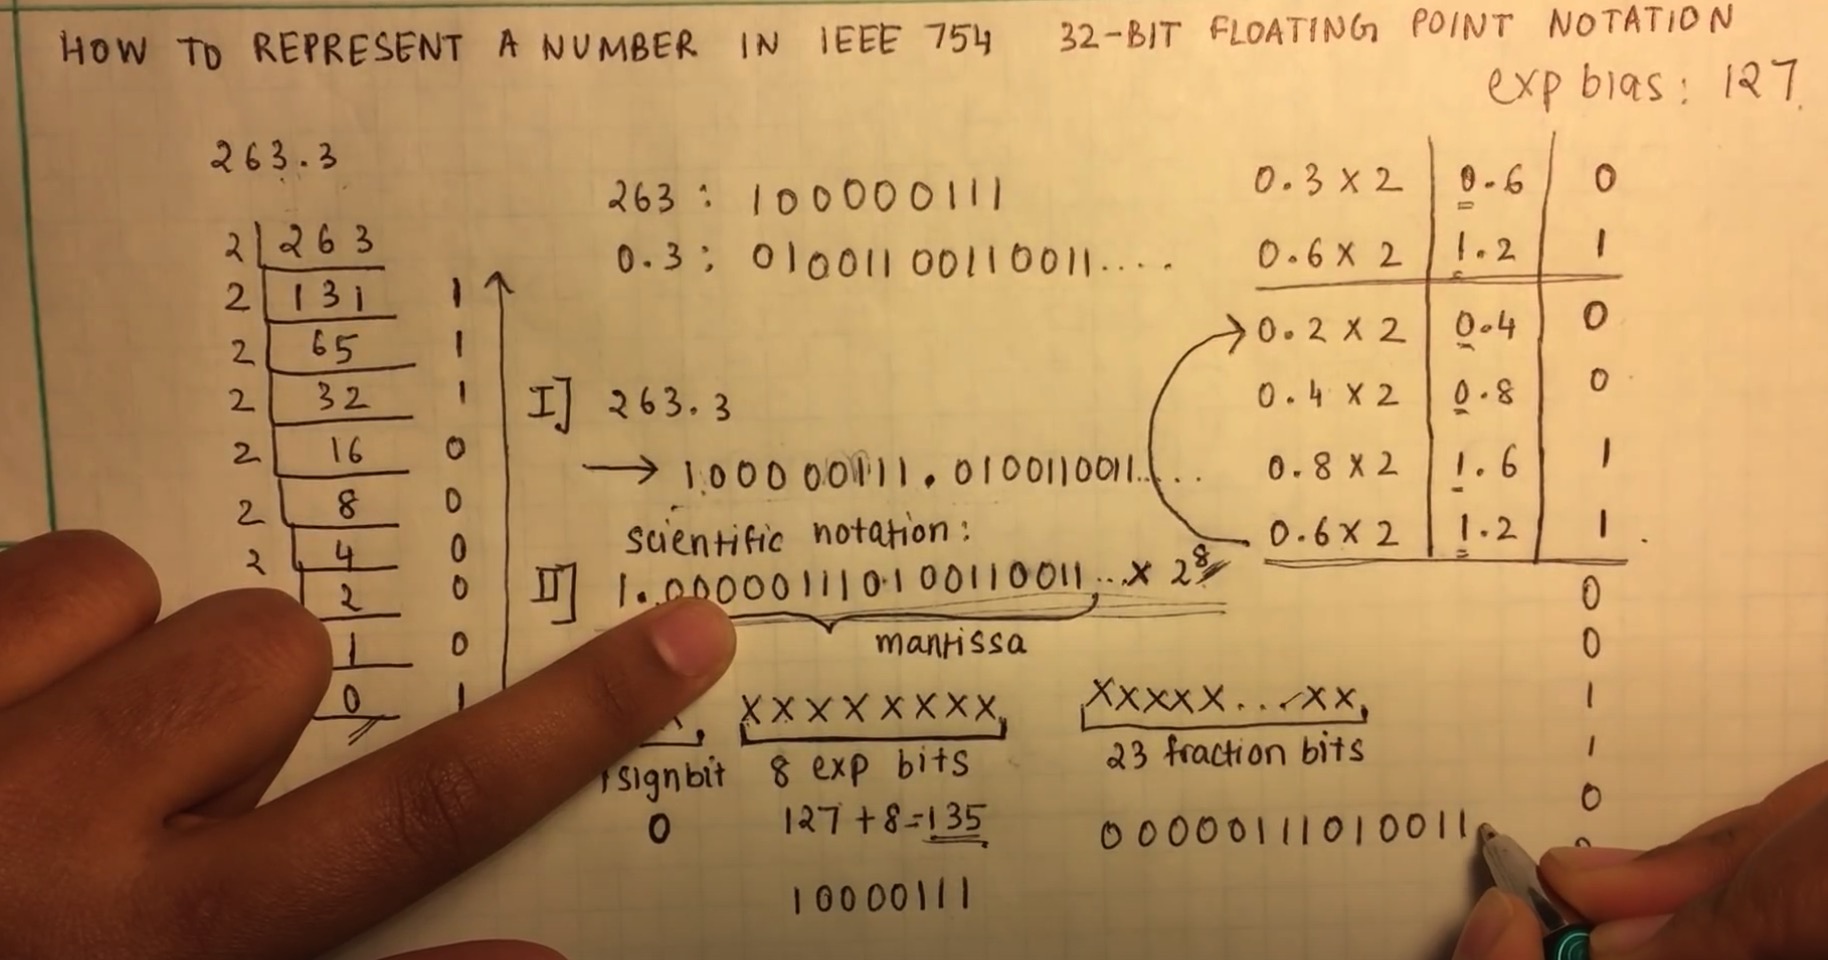 HOW TO REPRESENT A NUMBER IN IEEE 754 32-BIT FLOATING POINT NOTATION
exp bias: 127
263.3
2 263
2 131 1
2 65 1
2 32 1
2 16 0
2 8 0
2 4 0
2 0
1 0
0 1
263 : 100000111
0.3 : 01001100110011....
I] 263.3
→ 100000111.0100110011.....
scientific notation:
II] 1.000001110100110011... x 2^8
mantissa
X XXXXXXXX XXXXX...XX
1 sign bit 8 exp bits 23 fraction bits
0 127+8=135 00000111010011
10000111
0.3 x 2 0.6 0
0.6 x 2 1.2 1
0.2 x 2 0.4 0
0.4 x 2 0.8 0
0.8 x 2 1.6 1
0.6 x 2 1.2 1
0
0
1
1
0